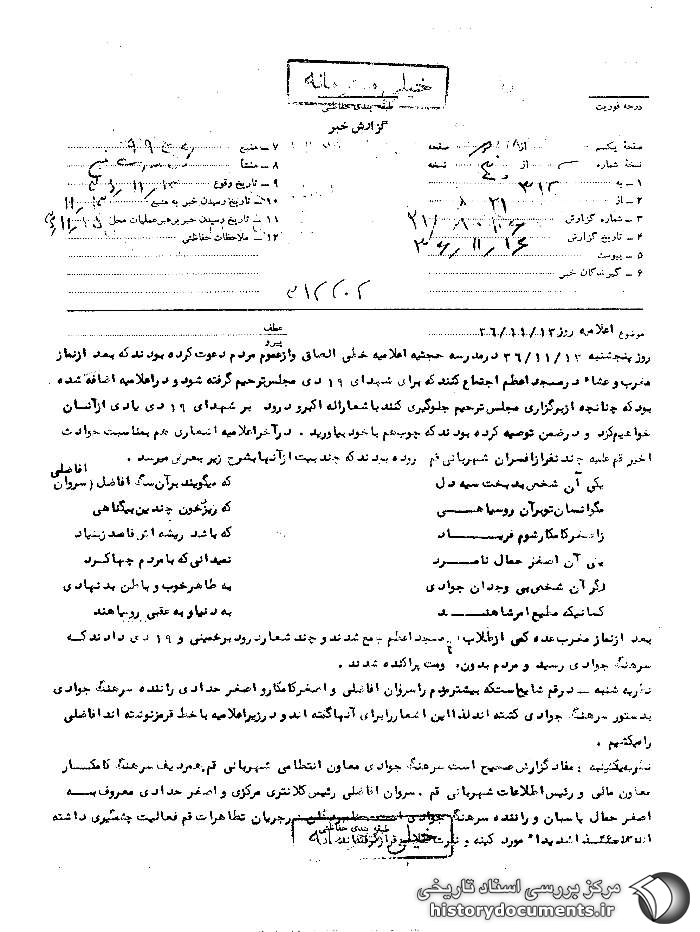 خیلی محرمانه
طبقه بندی حفاظتی
درجه فوریت
گزارش خبر
صفحه یکم از صفحه
نسخه شماره از نسخه
۱ ـ به ۳۱۲
۲ ـ از ۲۱
۳ ـ شماره گزارش
۴ ـ تاریخ گزارش ۳۶/۱۱/۱۶
۵ ـ پیوست
۶ ـ گیرندگان خبر
۷ ـ منبع
۸ ـ منشأ
۹ ـ تاریخ وقوع
۱۰ ـ تاریخ رسیدن خبر به منبع
۱۱ ـ تاریخ رسیدن خبر برهبر عملیات محل
۱۲ ـ ملاحظات حفاظتی
موضوع اعلامیه روز ۳۶/۱۱/۱۳ عطف
پیرو
روز پنجشنبه ۳۶/۱۱/۱۳ در مدرسه حجتیه اعلامیه خطی الصاق و از عموم مردم دعوت کرده بودند که بعد از نماز
مغرب و عشاء در مسجد اعظم اجتماع کنند که برای شهدای ۱۹ دی مجلس ترحیم گرفته شود و در اعلامیه اضافه شده
بود که چنانچه از برگزاری مجلس ترحیم جلوگیری کنند با شعار اله اکبر و درود بر شهدای ۱۹ دی یادی از آنان
خواهیم کرد و در ضمن توصیه کرده بودند که چوب هم با خود بیاورید . در آخر اعلامیه اشعاری هم بمناسبت حوادث
اخیر قم علیه چند نفر از افسران شهربانی قم روده بودند که چند بیت از آنها بشرح زیر بعرض میرسد .
یکی آن شخص بدبخت سیه دل که میگویند بر آن سگ افاضل (سروان افاضلی
مگر انسان تو بر آن روسیاهی که ریزد خون چندین بیگناهی
ز اصغر کامکار شوم فریاد که باشد ریشه اش فاسد ز بنیاد
یکی آن اصغر حمال نامرد نمیدانی که با مردم چها کرد
دگر آن شخص بی وجدان جوادی به ظاهر خوب و باطن بد نهادی
کسانیکه مطیع امر شاهند به دنیا و به عقبی روسیاهند
بعد از نماز مغرب عده کمی از طلاب در مسجد اعظم جمع شدند و چند شعار درود بر خمینی و ۱۹ دی دادند که
سرهنگ جوادی رسید و مردم بدون مقاومت پراکنده شدند .
نظریه شنبه ـ در قم شایع است که بیشتر مردم را سروان افاضلی و اصغر کامکار و اصغر حدادی راننده سرهنگ جوادی
بدستور سرهنگ جوادی کشته اند لذا این اشعار را برای آنها گفته اند و در زیر اعلامیه با خط قرمز نوشته اند افاضلی
را میکشیم .
نظریه یکشنبه : مفاد گزارش صحیح است سرهنگ جوادی معاون انتظامی شهربانی قم . همردیف سرهنگ کامکار
معاون مالی و رئیس اطلاعات شهربانی قم . سروان افاضلی رئیس کلانتری مرکزی و اصغر حدادی معروف به
اصغر حمال پاسبان و راننده سرهنگ جوادی است جریان تظاهرات قم فعالیت چشمگیری داشته
اند شدیدا" مورد کینه و نفرت قرار گرفته اند .
طبقه بندی حفاظتی
خیلی محرمانه
مرکز بررسی اسناد تاریخی
historydocuments.ir